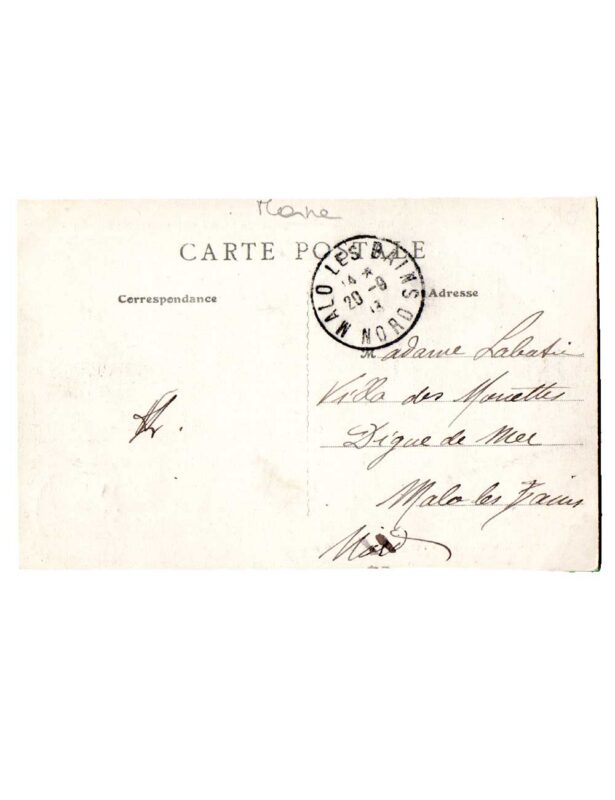 Marne
CARTE POSTALE
MALO LES BAINS
14 *
20 - 9
13
NORD
Correspondance
Adresse
Madame Labatie
Villa des Mouettes
Digue de Mer
Malo les Bains
Nord